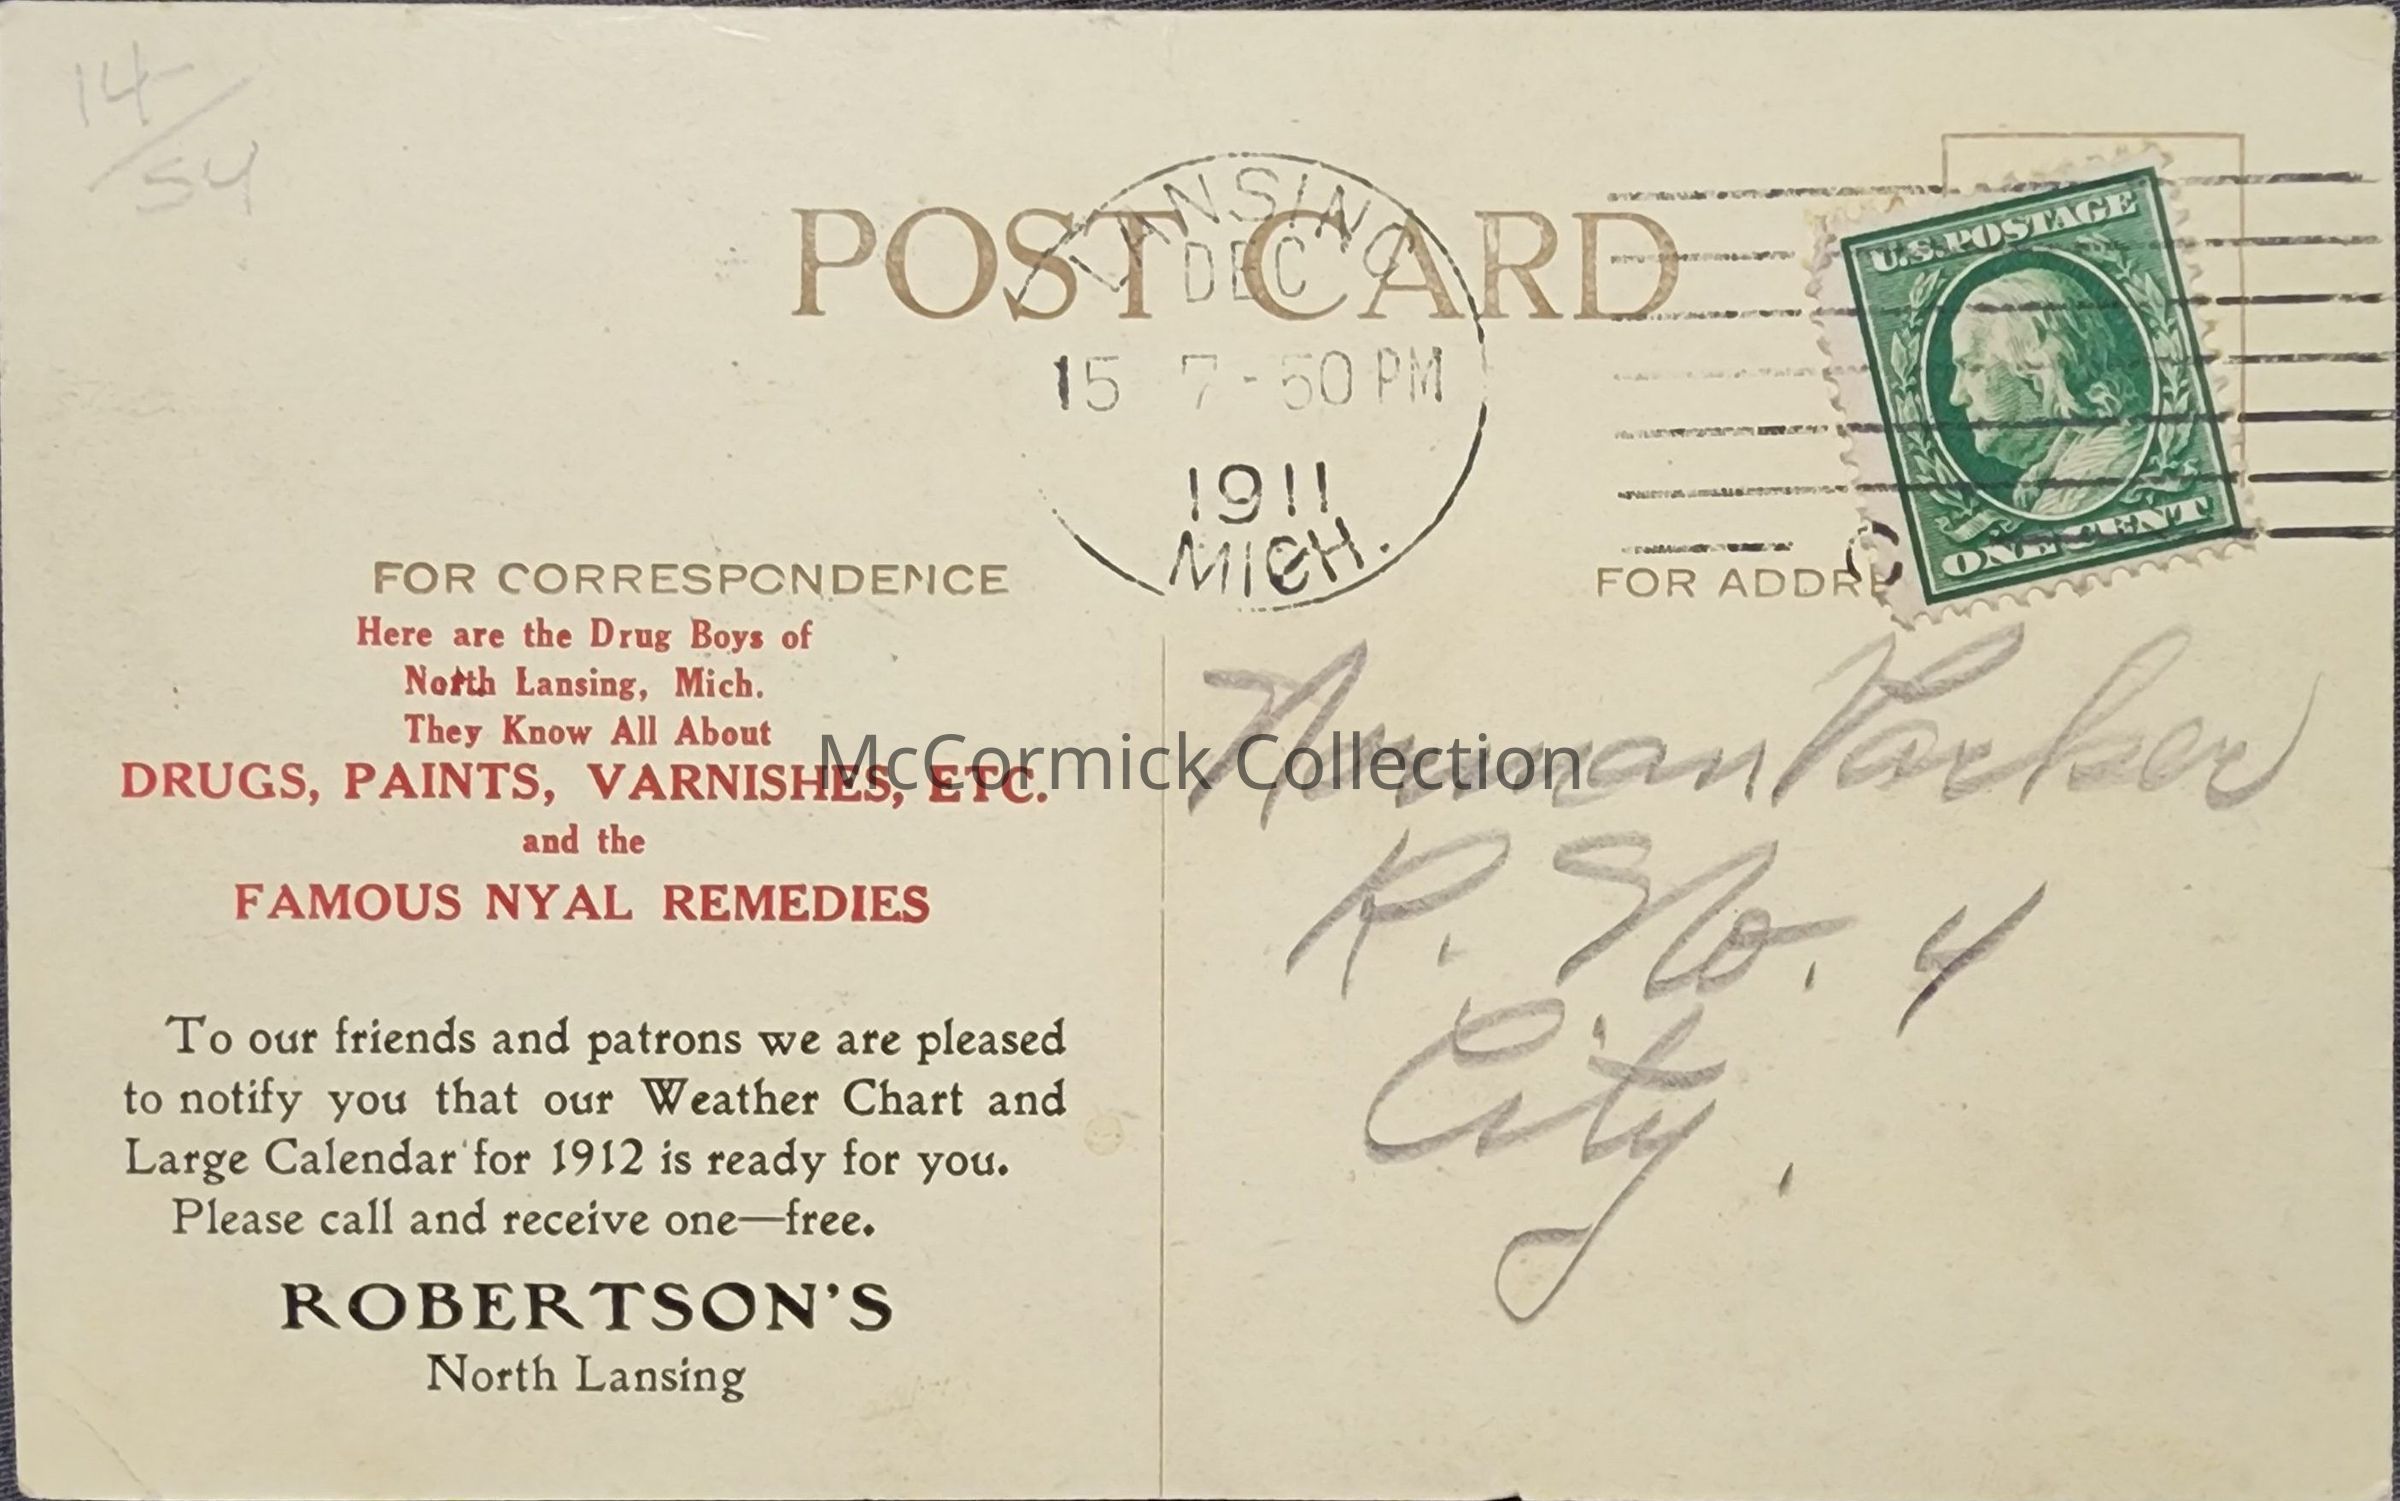 14
54
POST CARD
LANSING
DEC
15 7-50 PM
1911
MICH.
U.S. POSTAGE
ONE CENT
C
FOR CORRESPONDENCE
Here are the Drug Boys of
North Lansing, Mich.
They Know All About
DRUGS, PAINTS, VARNISHES, ETC.
and the
FAMOUS NYAL REMEDIES
To our friends and patrons we are pleased
to notify you that our Weather Chart and
Large Calendar for 1912 is ready for you.
Please call and receive one—free.
ROBERTSON'S
North Lansing
FOR ADDRE
Norman Parker
R. No. 4
City.
McCormick Collection